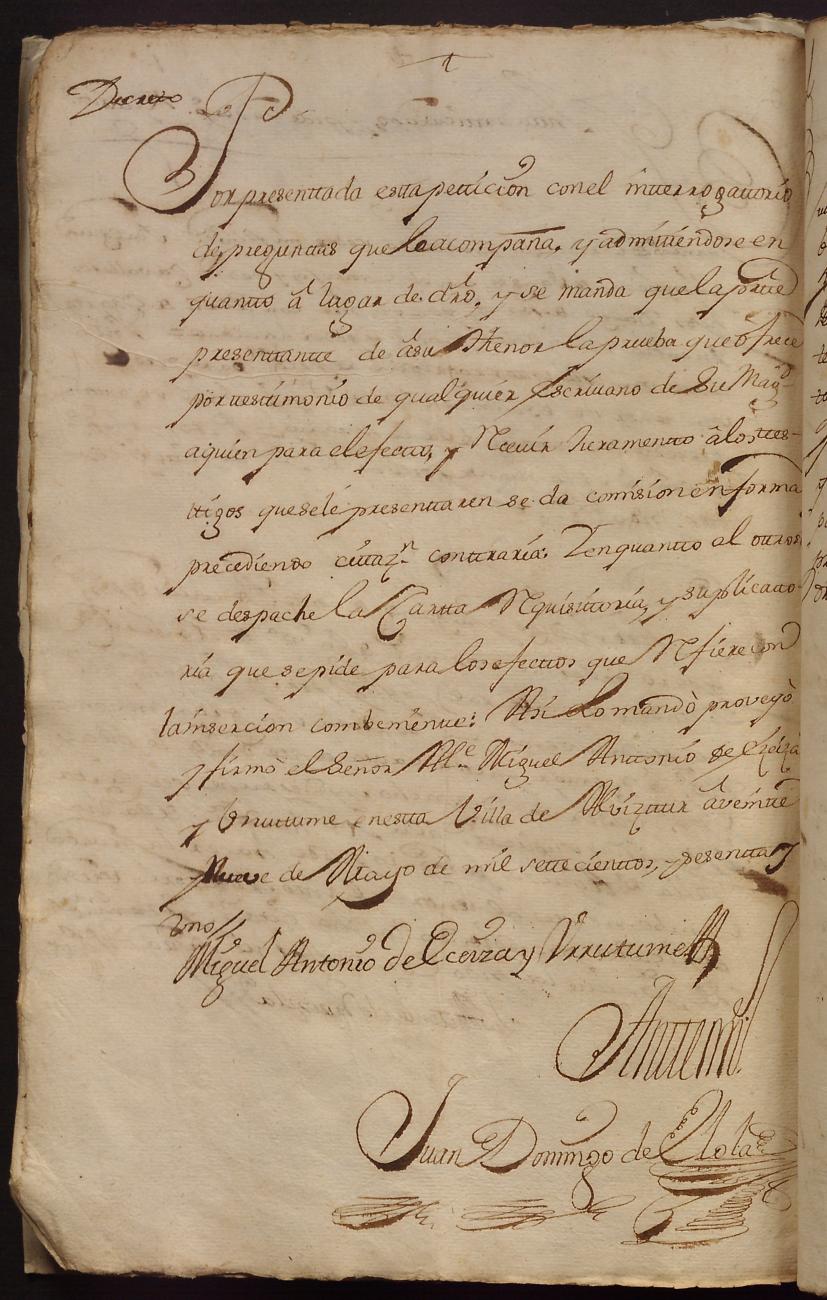 Decreto
Por presenttada estta petticion con el intterrogattorio
de preguntas que le acompaña, y admittiendose en
quantto â lugar de dro, y se manda que la partte
presenttantte de âsu thenor la prueba que ofrece
por testimonio de qualquier Escrivano de Su Magd
a quien para el efectto, y Recivir Juramentto â los ttes-
ttigos que se le presenttaren se da comision en forma
precediendo cittazn conttraria: Y en quantto al ottrosi
se despache la Cartta Requisittoria, y suplicatto-
ria que se pide para los efecttos que Refiere con
la insercion combenientte: Asi lo mandò proveyò
y firmò el Señor Alle Miguel Anttonio de Ezeiza
y Urruttume en estta Villa de Alvizttur â veintte
y Nueve de Mayo de mil settecienttos, y sesentta y
uno //
Miguel Antonio de Eceiza y Urrutume
Anttemi
Juan Domingo de Elola